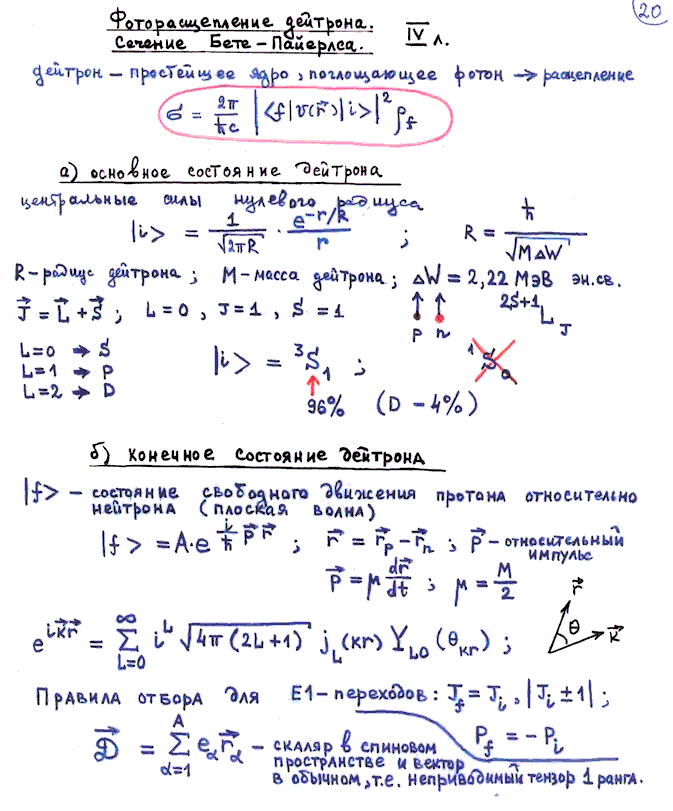 20
Фоторасщепление дейтрона.
Сечение Бете-Пайерлса. IV л.
дейтрон - простейшее ядро, поглощающее фотон → расщепление
σ = 2π/ħc |<f|v(r⃗)|i>|² ρ_f
а) основное состояние дейтрона
центральные силы нулевого радиуса
|i> = 1/√(2πR) · e^(-r/R)/r ; R = ħ/√(MΔW)
R-радиус дейтрона; M-масса дейтрона; ΔW = 2,22 МэВ эн.св.
J⃗ = L⃗ + S⃗ ; L=0 , J=1 , S=1 ↑p ↑n ^(2S+1)L_J
L=0 → S
L=1 → P |i> = ³S₁ ; ¹S₀
L=2 → D
96% (D - 4%)
б) конечное состояние дейтрона
|f> - состояние свободного движения протона относительно
нейтрона (плоская волна)
|f> = A·e^(i/ħ p⃗ r⃗) ; r⃗ = r⃗_p - r⃗_n ; p⃗ - относительный
импульс
p⃗ = μ dr⃗/dt ; μ = M/2
r⃗ θ k⃗
e^(ik⃗r⃗) = Σ_(L=0)^∞ i^L √(4π(2L+1)) j_L(kr) Y_L0(θ_kr) ;
Правила отбора для E1-переходов: J_f = J_i , |J_i ± 1| ;
P_f = - P_i
D⃗ = Σ_(α=1)^A e_α r⃗_α - скаляр в спиновом
пространстве и вектор
в обычном, т.е. неприводимый тензор 1 ранга.